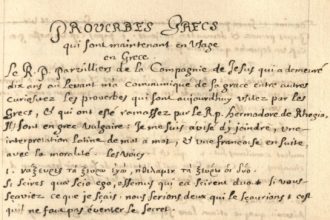 PROUERBES GRECS
qui sont maintenant en Usage
en Grece.
Le R.P. Parvilliers de la Compagnie de Jesus qui a demeuré
dix ans au levant m'a communiqué de sa grace entre autres
curiositez les proverbes qui sont aujourdhuy usitez par les
Grecs, et qui ont esté ramassez par le R.p. hermodore de Rhegio.
Il sont en grec Vulgaire: Je me suis avisé d'y joindre, une
interpretation latine de mot a mot, et une francoise en suitte
avec la moralité. les Voicy
si scires quæ scio ego, essemus qui ea scirent duo + si vous
sçaviez ce que je sçais, nous serions deux qui le sçaurions + c'est
qu'il ne faut pas éventer le secret.